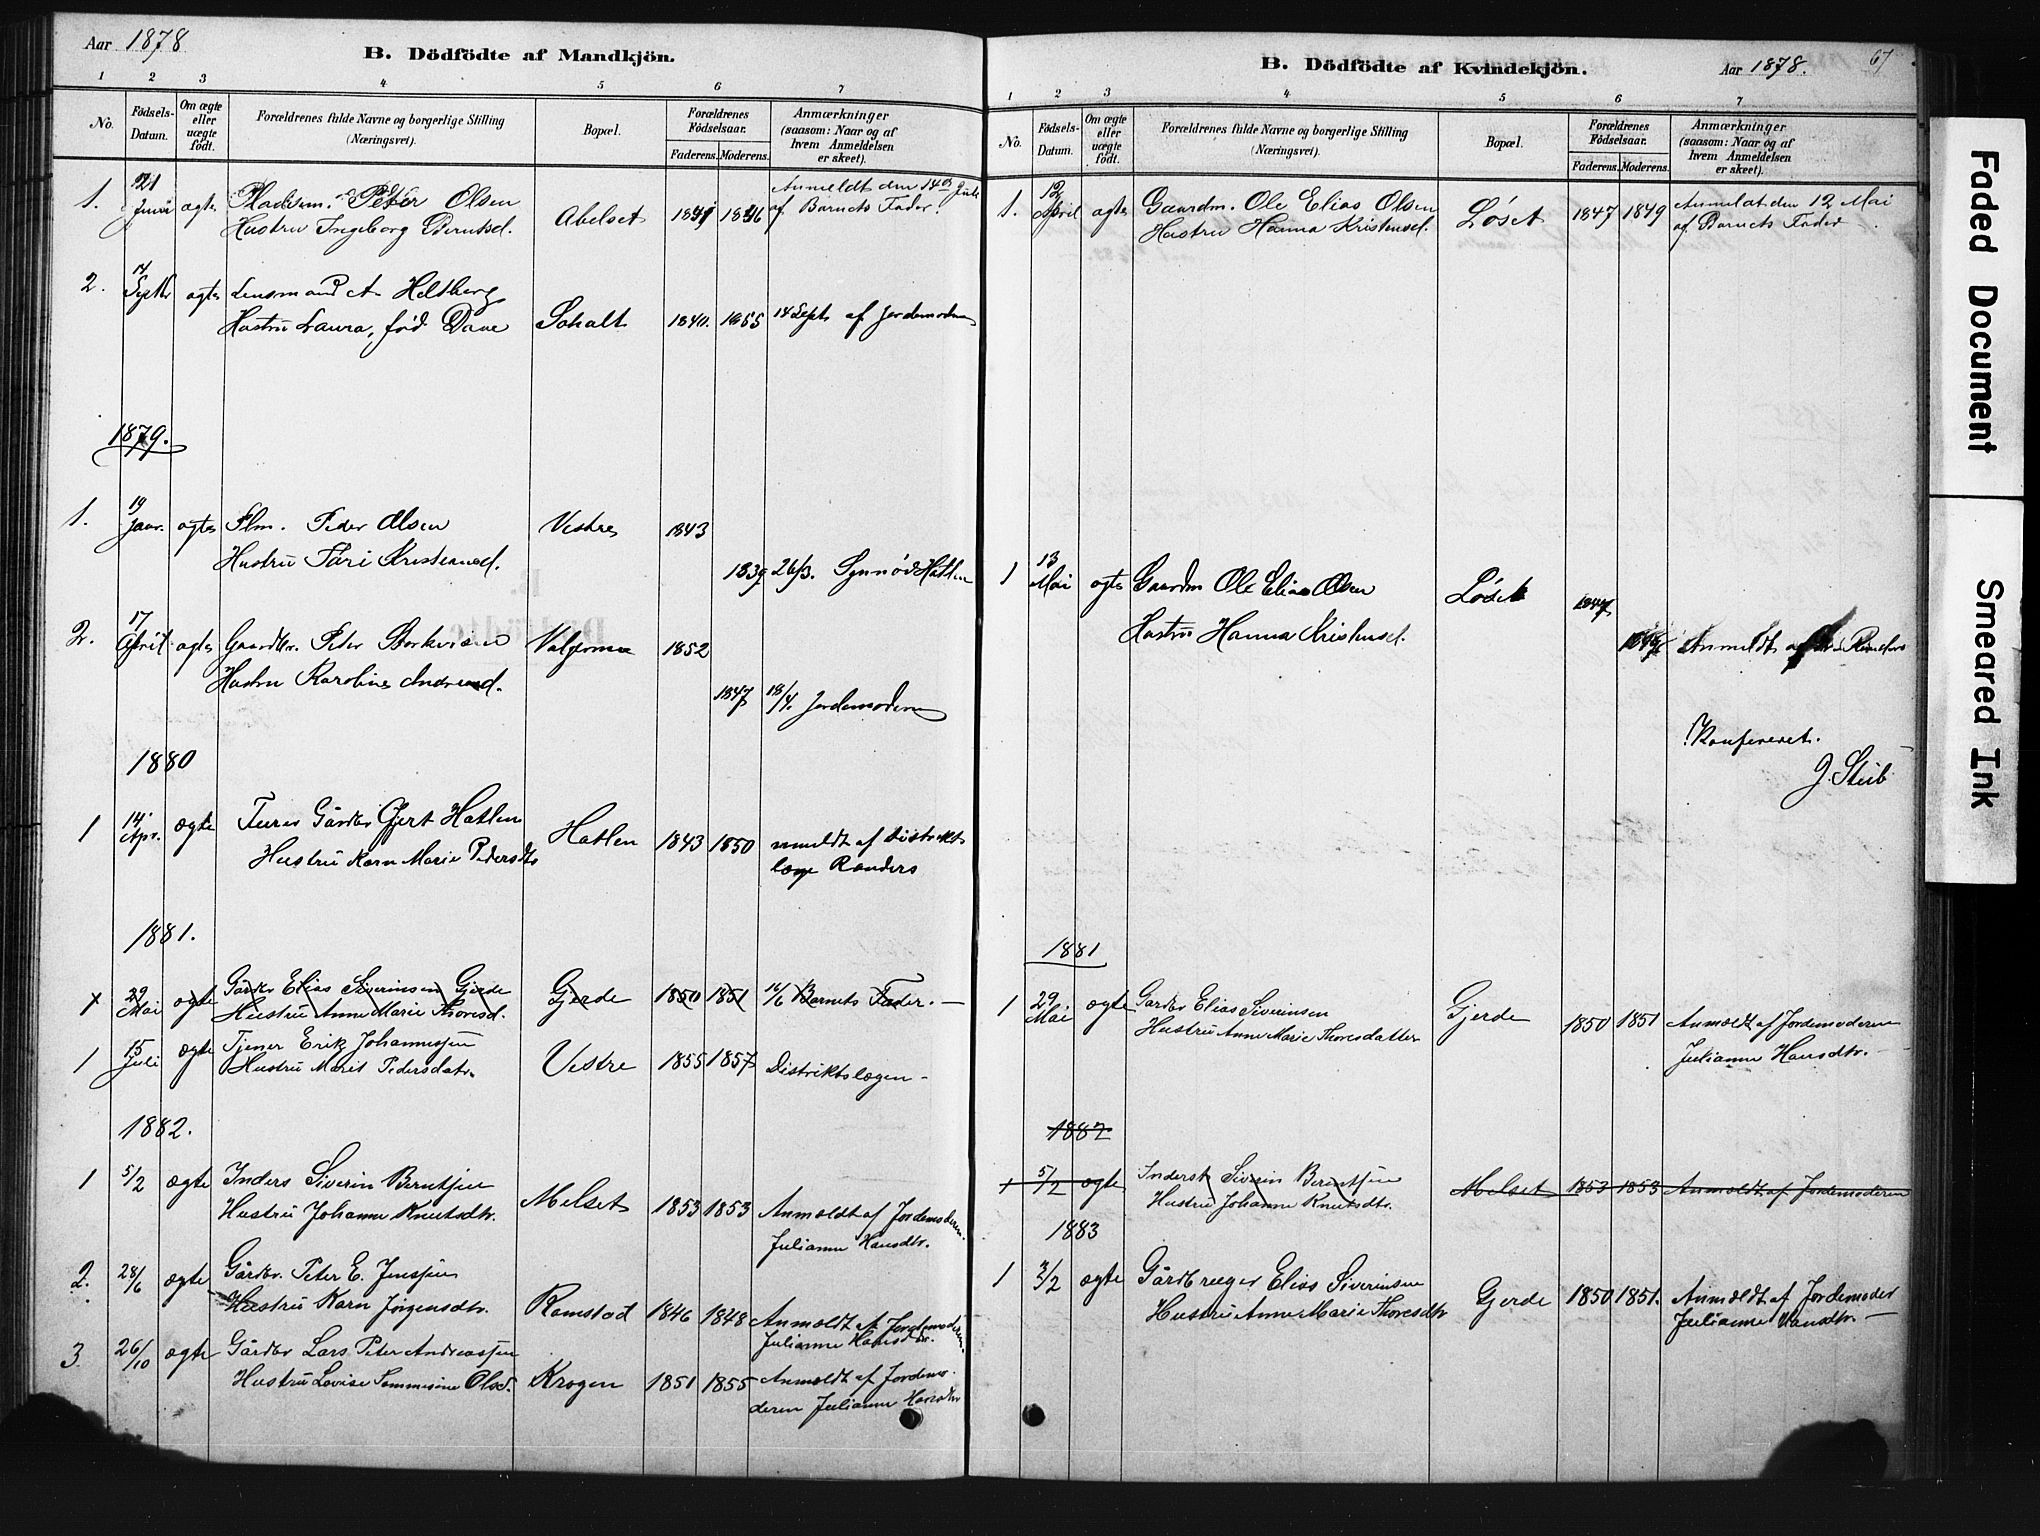 Aar 1878
B. Dödfödte af Mandkjön.
1 2 3 4 5 6 7
No.
Födsels-
Datum.
Om ægte
eller
uægte
födt.
Forældrenes fulde Navne og borgerlige Stilling
(Næringsvei).
Bopæl.
Forældrenes
Födselsaar.
Faderens. Moderens.
Anmærkninger
(saasom: Naar og af
hvem Anmeldelsen
er skeet).
1. 21 ægte Pladsm. Peter Olsen
Hustru Ingeborg Berntsd.
Abelset 1841 1846
Anmeldt den 14de Juli
af Barnets Fader.
2. 14 Septbr ægte Lensmand A. Heltberg
Hustru Laura, fød Daae
Soholt 1840. 1855 14 Sept af Jordemodern
1879.
1. 19 Janr. ægte Flm. Peder Olsen
Hustru Kristensd.
Vestre 1843
1839 26/3. Synnöv Hatlen
2. 17 April ægte Gaardbr. Peter
Hustru Karoline Andreasd.
1852
1847 18/4. Jordemoderen
1880
1 14 Apr. ægte Gårdbr Gjert Hatlen
Hustru Karn Marie Pedersdtr
Hatlen 1843 1850 anmeldt af Distrikts
læge Randers
1881.
1 29 Mai ægte Gårdbr Elias Siverinsen Gjerde
Hustru Anne Marie Thoresd.
Gjerde 1850 1851 16/6 Barnets Fader. —
1 15 Juli ægte Tjener Erik Johannessen
Hustru Marit Pedersdatr.
Vestre 1855 1857 Distriktslægen -
1882.
1 5/2 ægte Inders Siverin Berntsen
Hustru Johanne Knutsdtr.
Melset 1853 1853 Anmeldt af Jordemoderen
Julianne Hansdtr.
2. 28/6 ægte Gårdbr. Peter E. Jenssen
Hustru Karn Jørgensdtr.
Ramstad 1846 1848 Anmeldt af Jordemoderen
Julianne Hansdtr.
3 26/10 ægte Gårdbr Lars Peter Andreassen
Hustru Lovise Olsd.
Krogen 1851 1855 Anmeldt af Jordemo-
deren Julianne Hansdtr
B. Dödfödte af Kvindekjön.
Aar 1878.
67
1 2 3 4 5 6 7
No.
Födsels-
Datum.
Om ægte
eller
uægte
födt.
Forældrenes fulde Navne og borgerlige Stilling
(Næringsvei).
Bopæl.
Forældrenes
Födselsaar.
Faderens. Moderens.
Anmærkninger
(saasom: Naar og af
hvem Anmeldelsen
er skeet).
1. 12 April ægte Gaardm. Ole Elias Olsen
Hustru Hanna Kristensd.
Løset 1847 1849 Anmeldt den 12 Mai
af Barnets Fader
1 13 Mai ægte Gaardm Ole Elias Olsen
Hustru Hanna Kristensd.
Løset 1847
1849 Anmeldt af Randers
Konfereret.
J. Steib
1881
1 29 Mai ægte Gårdbr Elias Siverinsen
Hustru Anne Marie Thoresdatter
Gjerde 1850 1851 Anmeldt af Jordemoderen
Julianne Hansdtr. -
1882
1 5/2 ægte Inderst Siverin Berntsen
Hustru Johanne Knutsdtr.
Melset 1853 1853 Anmeldt af Jordemoderen
1883
1 3/2 ægte Gårdbruger Elias Siverinsen
Hustru Anne Marie Thoresdtr
Gjerde 1850 1851. Anmeldt af Jordemoder
Julianne Hansdtr. —
Faded Document
Smeared Ink